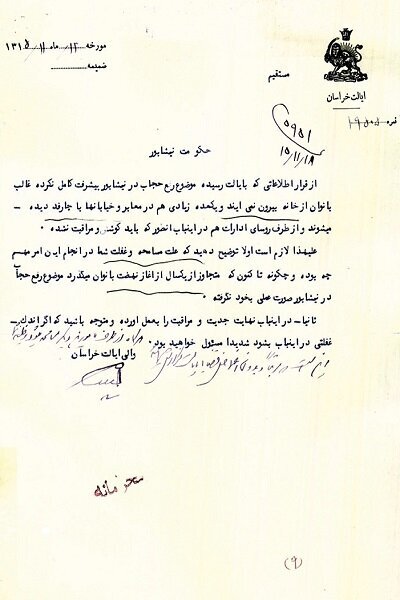 مورخه ۱۲ ماه ۱۱ ۱۳۱۵
ضمیمه
مستقیم
ایالت خراسان
نمره
۵۹۵۱
۱۵/۱۱/۱۸
حکومت نیشابور
از قرار اطلاعاتی که بایالت رسیده موضوع رفع حجاب در نیشابور پیشرفت کامل نکرده غالب
بانوان از خانه بیرون نمی ایند و یکعده زیادی هم در معابر و خیابانها با چارقد دیده -
میشوند و از طرف روسای ادارات هم در اینباب انطور که باید کوشش و مراقبت نشده .
علیهذا لازم است اولا توضیح دهید که علت مسامحه و غفلت شما در انجام این امر مهم
چه بوده و چگونه تا کنون که متجاوز از یکسال از اغاز نهضت بانوان میگذرد موضوع رفع حجاب
در نیشابور صورت عملی بخود نگرفته
ثانیا - در اینباب نهایت جدیت و مراقبت را بعمل اورده و متوجه باشید که اگر اندک -
غفلتی در اینباب بشود شدیدا مسئول خواهید بود.
والی ایالت خراسان
محرمانه
(۹)